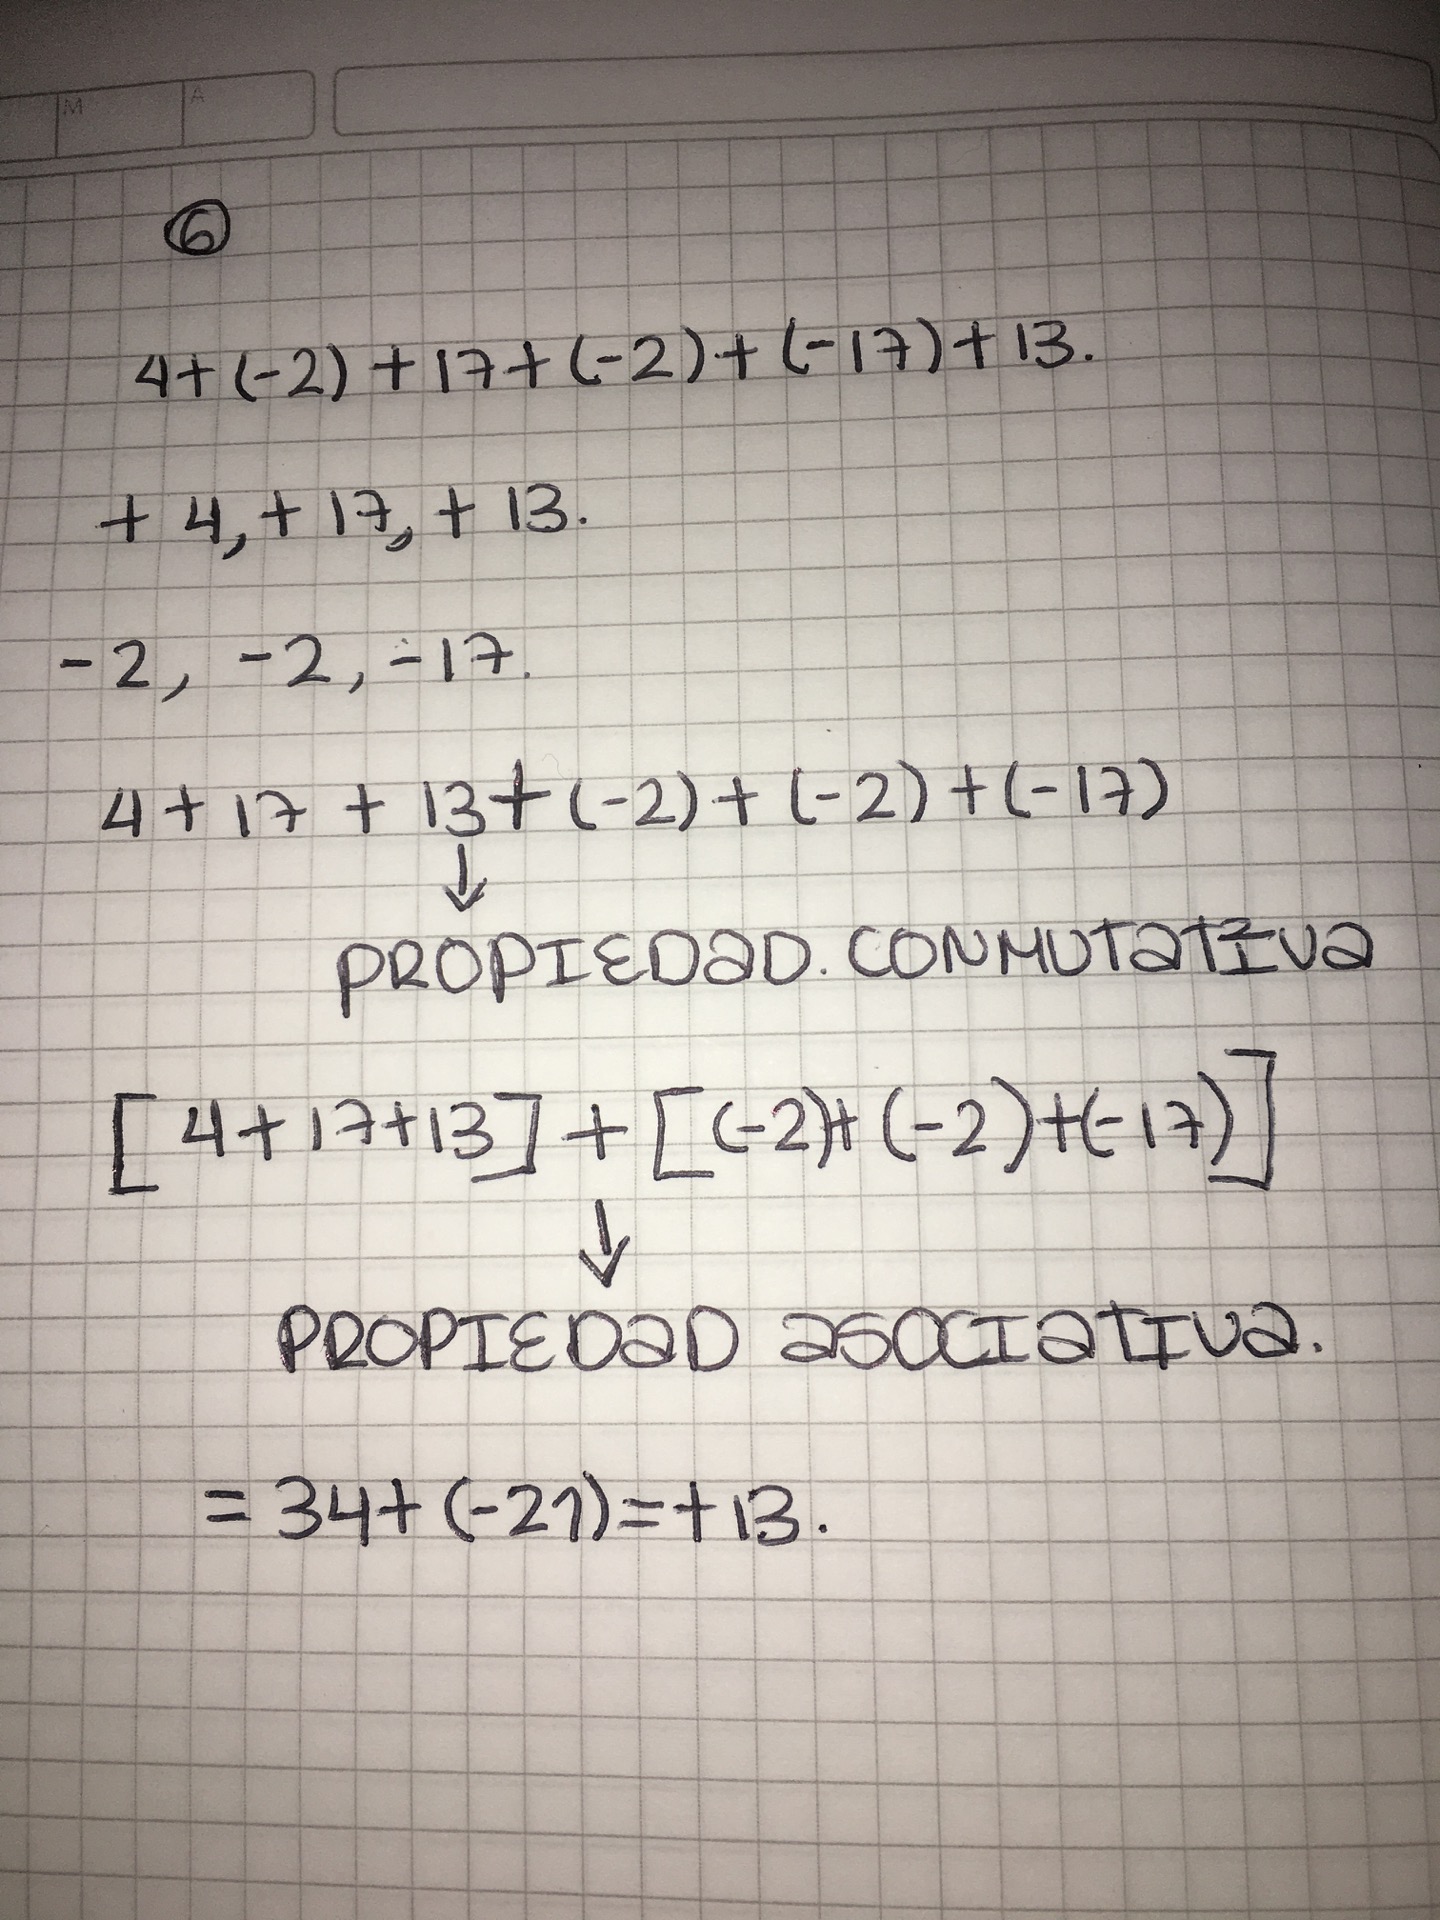 M A
6
4+(-2)+17+(-2)+(-17)+13.
+4,+17,+13.
-2, -2, -17.
4+17+13+(-2)+(-2)+(-17)
↓
PROPIEDAD. CONMUTATIVA
[4+17+13]+[(-2)+(-2)+(-17)]
↓
PROPIEDAD ASOCIATIVA.
=34+(-21)=+13.